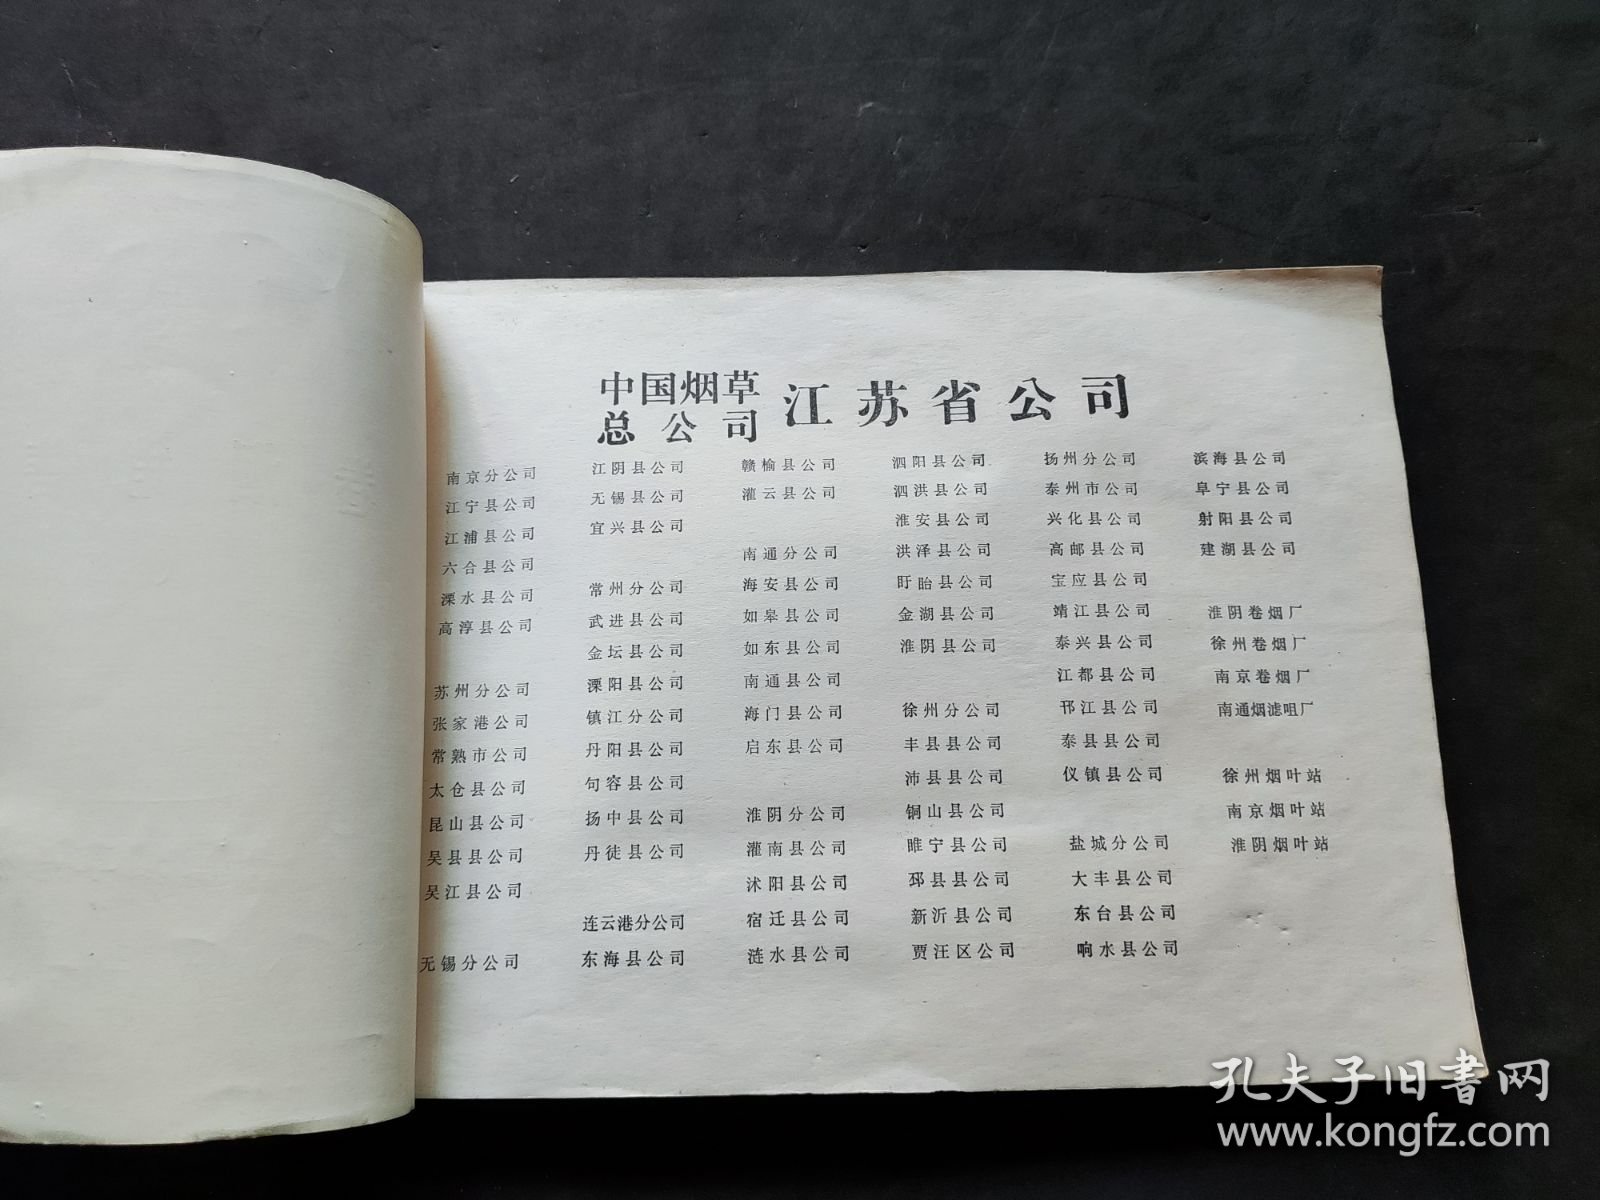 中国烟草
总公司
江苏省公司
南京分公司
江宁县公司
江浦县公司
六合县公司
溧水县公司
高淳县公司
苏州分公司
张家港公司
常熟市公司
太仓县公司
昆山县公司
吴县县公司
吴江县公司
无锡分公司
江阴县公司
无锡县公司
宜兴县公司
常州分公司
武进县公司
金坛县公司
溧阳县公司
镇江分公司
丹阳县公司
句容县公司
扬中县公司
丹徒县公司
连云港分公司
东海县公司
赣榆县公司
灌云县公司
南通分公司
海安县公司
如皋县公司
如东县公司
南通县公司
海门县公司
启东县公司
淮阴分公司
灌南县公司
沭阳县公司
宿迁县公司
涟水县公司
泗阳县公司
泗洪县公司
淮安县公司
洪泽县公司
盱眙县公司
金湖县公司
淮阴县公司
徐州分公司
丰县县公司
沛县县公司
铜山县公司
睢宁县公司
邳县县公司
新沂县公司
贾汪区公司
扬州分公司
泰州市公司
兴化县公司
高邮县公司
宝应县公司
靖江县公司
泰兴县公司
江都县公司
邗江县公司
泰县县公司
仪镇县公司
盐城分公司
大丰县公司
东台县公司
响水县公司
滨海县公司
阜宁县公司
射阳县公司
建湖县公司
淮阴卷烟厂
徐州卷烟厂
南京卷烟厂
南通烟滤咀厂
徐州烟叶站
南京烟叶站
淮阴烟叶站
孔夫子旧书网
www.kongfz.com